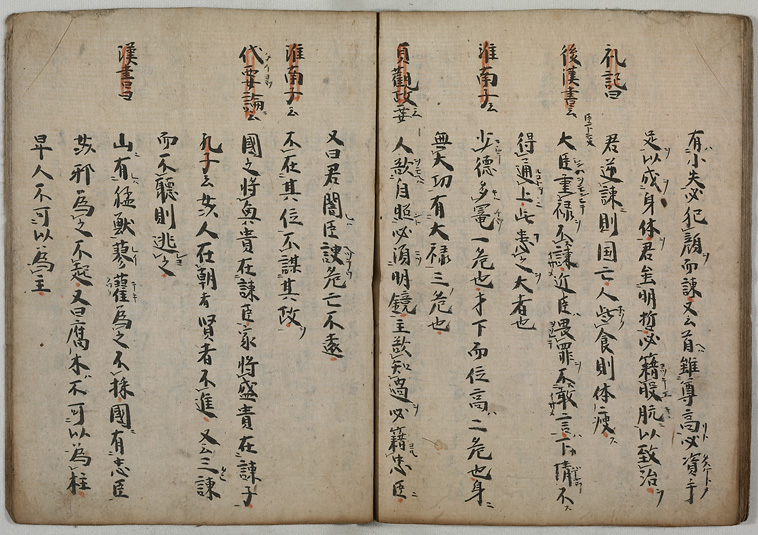 有小失必犯顔而諫又云首雖尊高必資手
足以成身体君至明哲必籍股肱以致治
礼記曰
君逆諫則国亡人呰食則体瘦
後漢書云
大臣重禄不諫近臣畏罪不敢言下情不
得通上此患之大者也
淮南子云
少德多寵一危也才下而位高二危也身
無大功有大禄三危也
貞觀政要云
人欲自照必須明鏡主欲知過必籍忠臣
又曰君闇臣諛危亡不遠
淮南子云
不在其位不謀其政
代要論云
國之將興貴在諫臣家將盛貴在諫子
孔子云 人在朝者賢者不進又云三諫
而不聽則逃之
漢書曰
山有猛獸藜藿為之不採國有忠臣
姧邪為之不起又曰腐木不可以為柱
卑人不可以為主